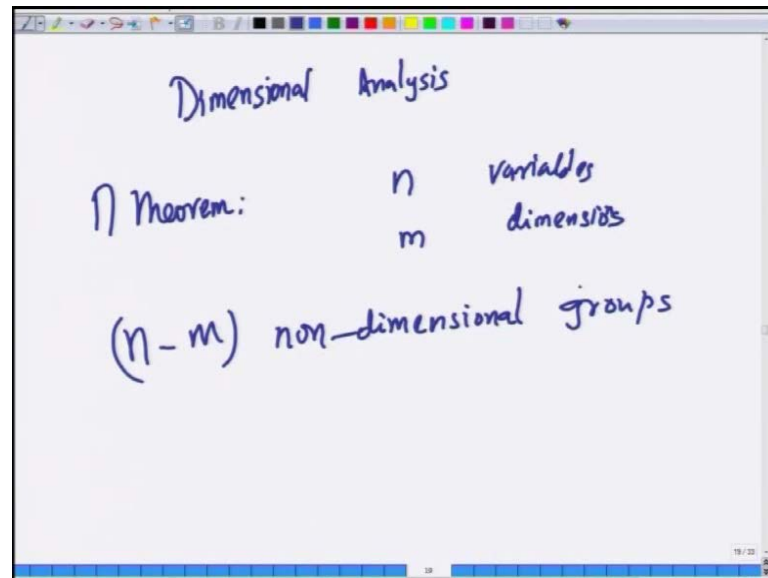 Dimensional Analysis
Π Theorem: n variables
m dimensions
(n - m) non-dimensional groups
19/22
19